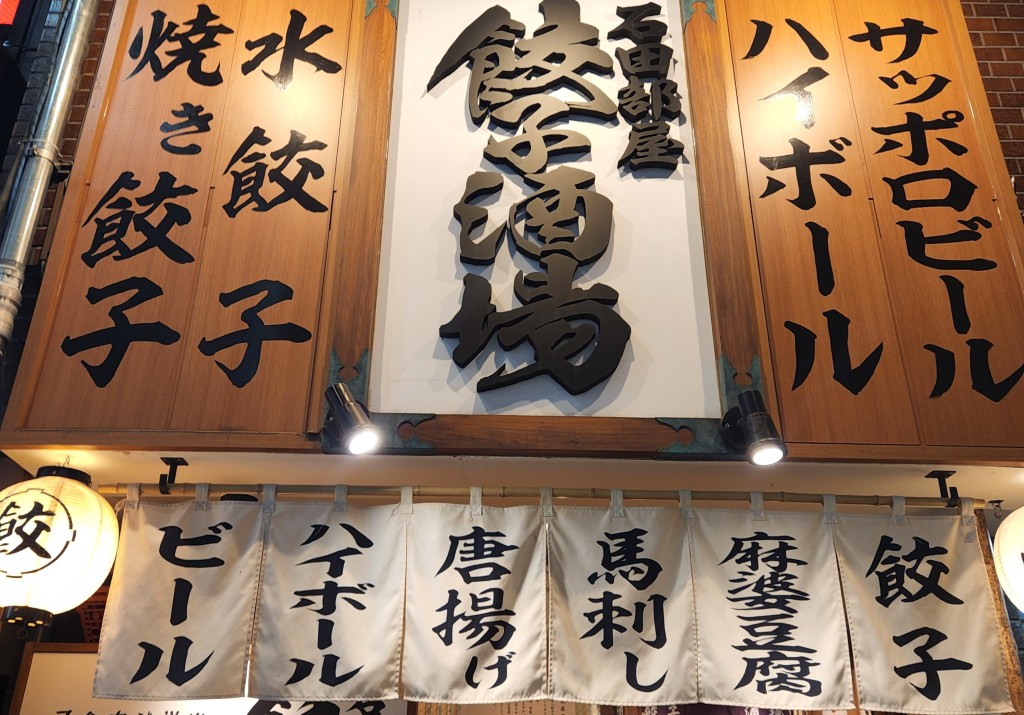 サッポロビール
ハイボール
石田部屋
餃子酒場
水餃子
焼き餃子
餃子
麻婆豆腐
馬刺し
唐揚げ
ハイボール
ビール
餃